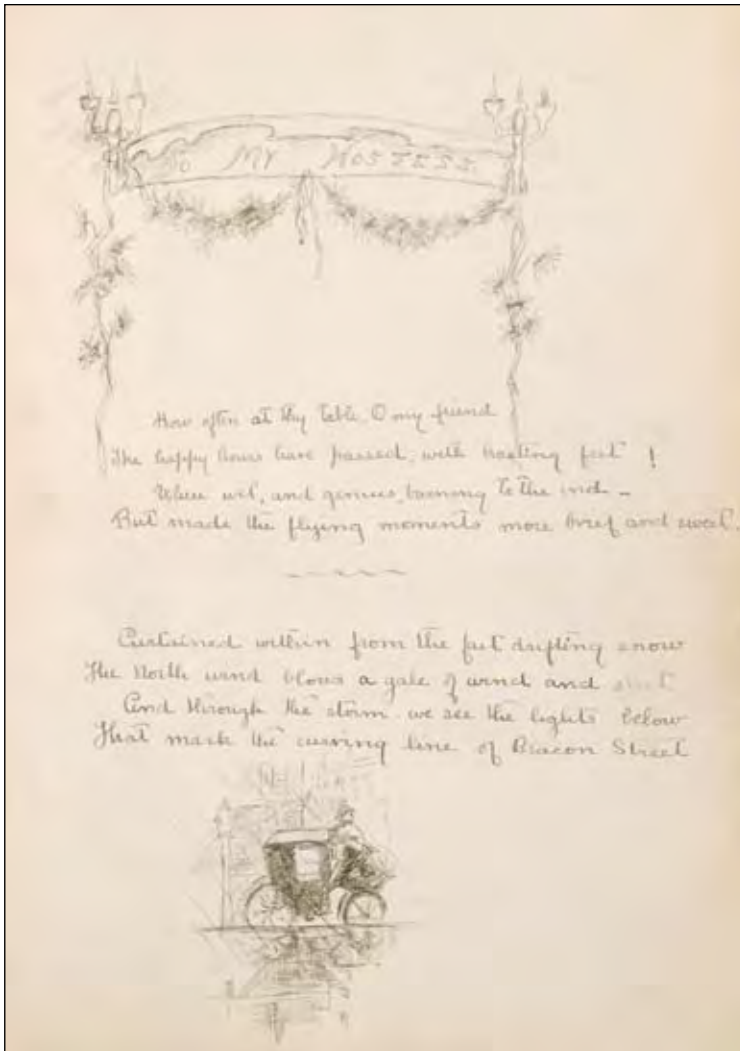 To MY HOSTESS.
How often at thy table, O my friend
The happy hours have passed, with hasting feet !
Where wit, and genius, to the end –
But made the flying moments more brief and sweet.
Curtained within from the fast drifting snow
The North wind blows a gale of wind and sleet
And through the storm we see the lights below
That mark the curving line of Beacon Street